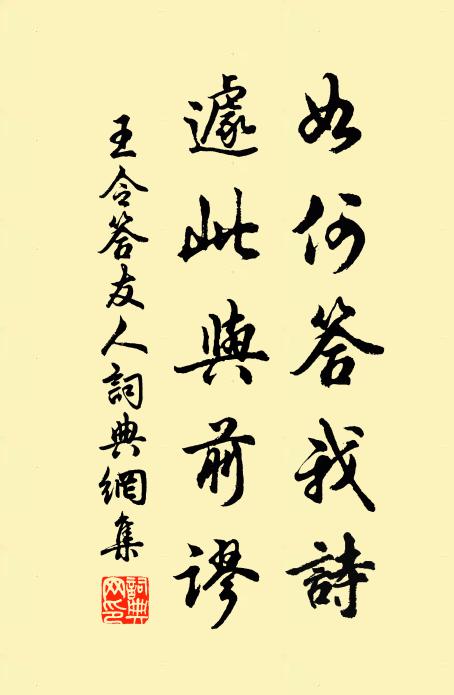 如何答我詩
遽此與前謬
王令答友人詞典網集
詞典網印